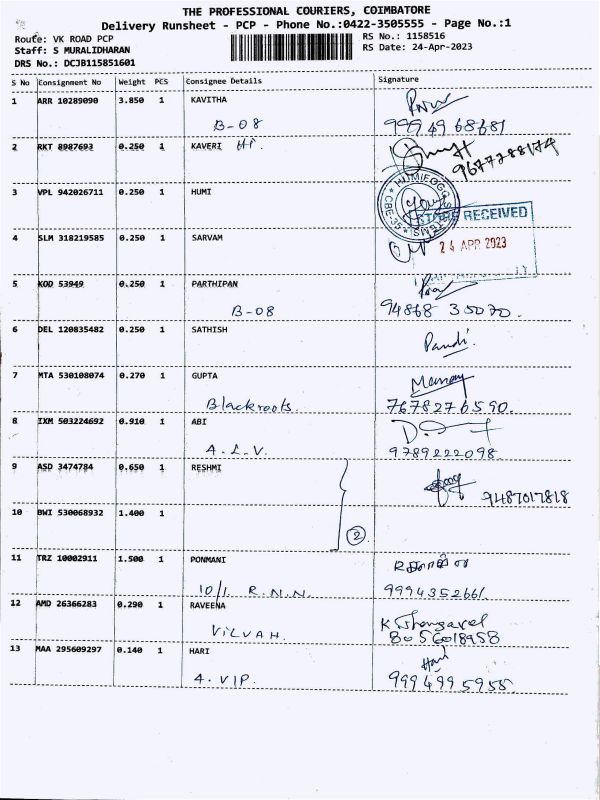 THE PROFESSIONAL COURIERS, COIMBATORE
Delivery Runsheet - PCP - Phone No.:0422-3505555 - Page No.:1
Route: VK ROAD PCP
Staff: S MURALIDHARAN
DRS No.: DCJB115851601
RS No.: 1158516
RS Date: 24-Apr-2023
S No Consignment No Weight PCS Consignee Details Signature
1 ARR 10289090 3.850 1 KAVITHA
B-08 99949 68681
2 RKT 8987693 0.250 1 KAVERI
9677288174
3 VPL 942026711 0.250 1 HUMI
CBE-35
RECEIVED
4 SLM 318219585 0.250 1 SARVAM
24 APR 2023
5 KOD 53949 0.250 1 PARTHIPAN
B-08 94868 35070.
6 DEL 120835482 0.250 1 SATHISH
Pandi.
7 MTA 530108074 0.270 1 GUPTA
Blackroots. 7678276590.
8 IXM 503224692 0.910 1 ABI
A.L.V. 9789222098
9 ASD 3474784 0.650 1 RESHMI
9487017818
10 BWI 530068932 1.400 1
2
11 TRZ 10002911 1.500 1 PONMANI
10/1 R.N.N. 9994352661
12 AMD 26366283 0.290 1 RAVEENA
VILVAH. 8056018958
13 MAA 295609297 0.140 1 HARI Hari
4. VIP. 9994995955